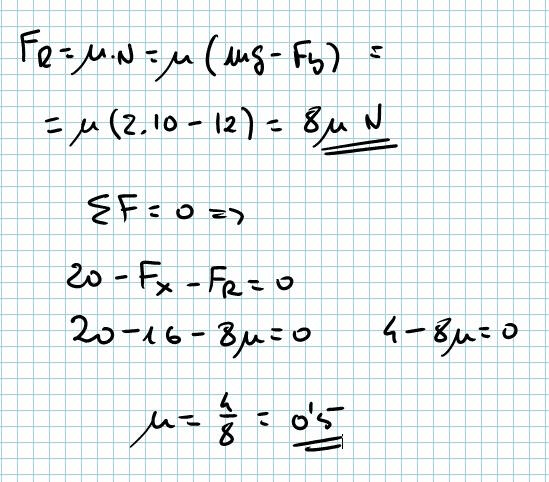 F_R = μ·N = μ(mg - F_y) =
= μ(2.10 - 12) = 8μ N
ΣF = 0 =>
20 - F_x - F_R = 0
20 - 16 - 8μ = 0    4 - 8μ = 0
μ = 4/8 = 0'5